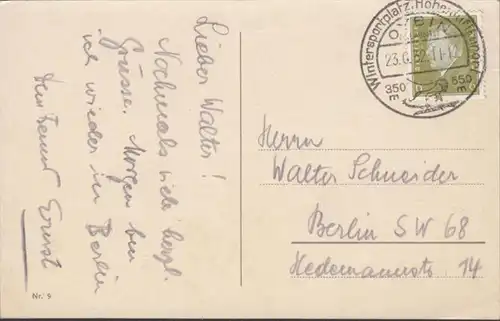 Lieber Walter!
Nochmals viele herzl.
Grüsse. Morgen bin
ich wieder in Berlin
Dein Freund Ernst
Nr. 9
Wintersportplatz, Höhenluftkurort
OYBIN
23.6.32.11-12
350 550
Herrn
Walter Schneider
Berlin SW 68
Hedemannstr. 14